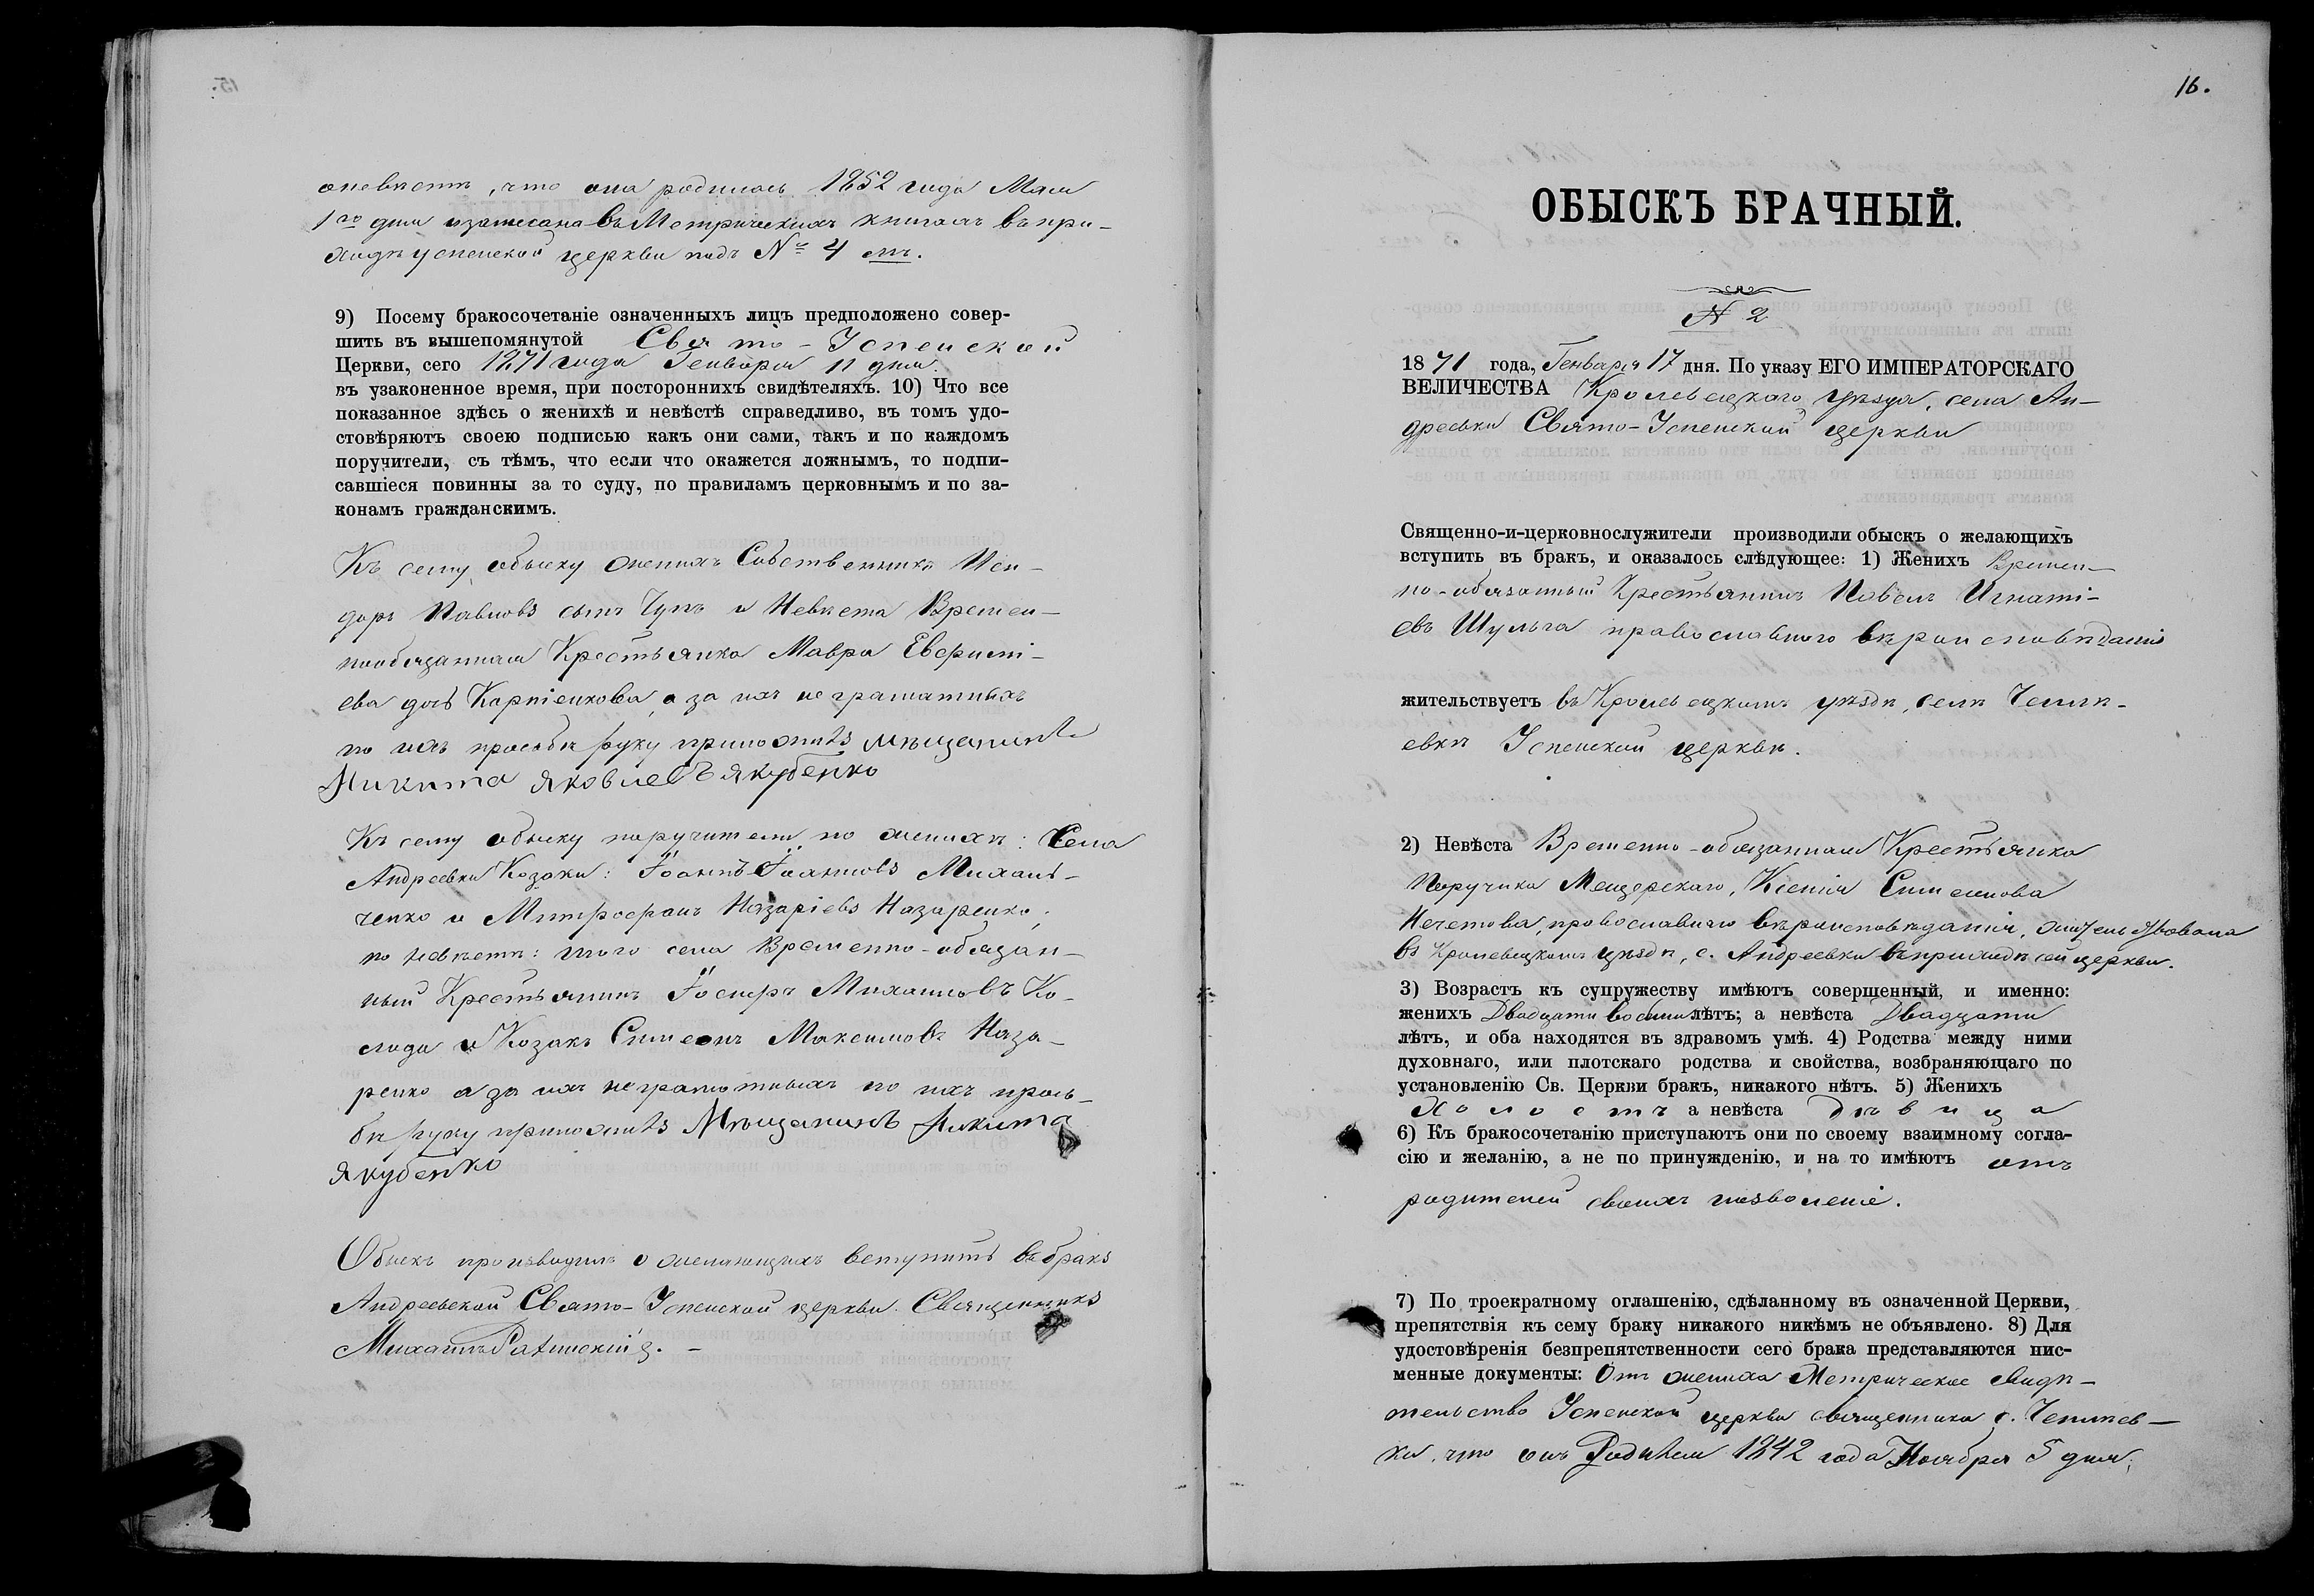 что она родилась 1852 года Мая
1го дня и записана въ Метрическихъ книгахъ въ при-
ходѣ Успенской церкви подъ № 4 мъ.
9) Посему бракосочетаніе означенныхъ лицъ предположено совер-
шить въ вышепомянутой Свято-Успенской
Церкви, сего 1871 года Генворя 11 дня.
въ узаконенное время, при постороннихъ свидѣтеляхъ. 10) Что все
показанное здѣсь о женихѣ и невѣстѣ справедливо, въ томъ удо-
стовѣряютъ своею подписью какъ они сами, такъ и по каждомъ
поручители, съ тѣмъ, что если что окажется ложнымъ, то подпи-
савшіеся повинны за то суду, по правиламъ церковнымъ и по за-
конамъ гражданскимъ.
Къ сему обыску женихъ Собственникъ Иси-
доръ Павловъ сынъ Чупъ и Невѣста Времен-
нообязанная Крестьянка Мавра Евфимі-
ева дочь Карпіенкова, а за ихъ неграматныхъ
по ихъ прозьбѣ руку приложилъ мѣщанинъ
Никита Яковлевъ Якубенко
Къ сему обыску поручители по женихѣ: Села
Андреевки Козаки: Іоаннъ Іоанновъ Михаль-
ченко и Митрофанъ Назаріевъ Назаренко;
по невѣстѣ: того села Временно-обязан-
ный Крестьянинъ Іосифъ Михаиловъ Ко-
лода и Козакъ Симеонъ Максимовъ Наза-
ренко а за ихъ неграмотныхъ по ихъ прозь-
бѣ руку приложилъ Мѣщанинъ Никита
Якубенко
Обыскъ производилъ о желающихъ вступить въ бракъ
Андреевской Свято-Успенской церкви Священникъ
Михаилъ
16.
ОБЫСКЪ БРАЧНЫЙ.
№ 2
1871 года, Генваря 17 дня. По указу ЕГО ИМПЕРАТОРСКАГО
ВЕЛИЧЕСТВА Кролевецкаго уѣзда, села Ан-
дреевки Свято-Успенской церкви
Священно-и-церковнослужители производили обыскъ о желающихъ
вступить въ бракъ, и оказалось слѣдующее: 1) Женихъ Времен-
но-обязанный Крестьянинъ Павелъ Игнаті-
евъ Шульга православнаго вѣроисповѣданія
жительствуетъ въ Кролевецкомъ уѣздѣ, селѣ Чепли-
евкѣ Успенской церкви.
2) Невѣста Временно-обязанная Крестьянка
Поручика Мещерскаго, Ксенія Симеонова
Нечетова, православнаго вѣроисповѣданія, жительствовала
въ Кролевецкомъ уѣздѣ, с. Андреевки въ приходѣ сей церкви.
3) Возрастъ къ супружеству имѣютъ совершенный, и именно:
женихъ Двадцати восьми лѣтъ; а невѣста Двадцати
лѣтъ, и оба находятся въ здравомъ умѣ. 4) Родства между ними
духовнаго, или плотскаго родства и свойства, возбраняющаго по
установленію Св. Церкви бракъ, никакого нѣтъ. 5) Женихъ
Холостъ а невѣста дѣвица
6) Къ бракосочетанію приступаютъ они по своему взаимному согла-
сію и желанію, а не по принужденію, и на то имѣютъ отъ
родителей своихъ позволеніе.
7) По троекратному оглашенію, сдѣланному въ означенной Церкви,
препятствія къ сему браку никакого никѣмъ не объявлено. 8) Для
удостовѣренія безпрепятственности сего брака представляются пис-
менные документы: Отъ жениха Метрическое свидѣ-
тельство Успенской церкви священника с. Чеплиев-
ки, что онъ Родился 1842 года Ноября 5 дня;